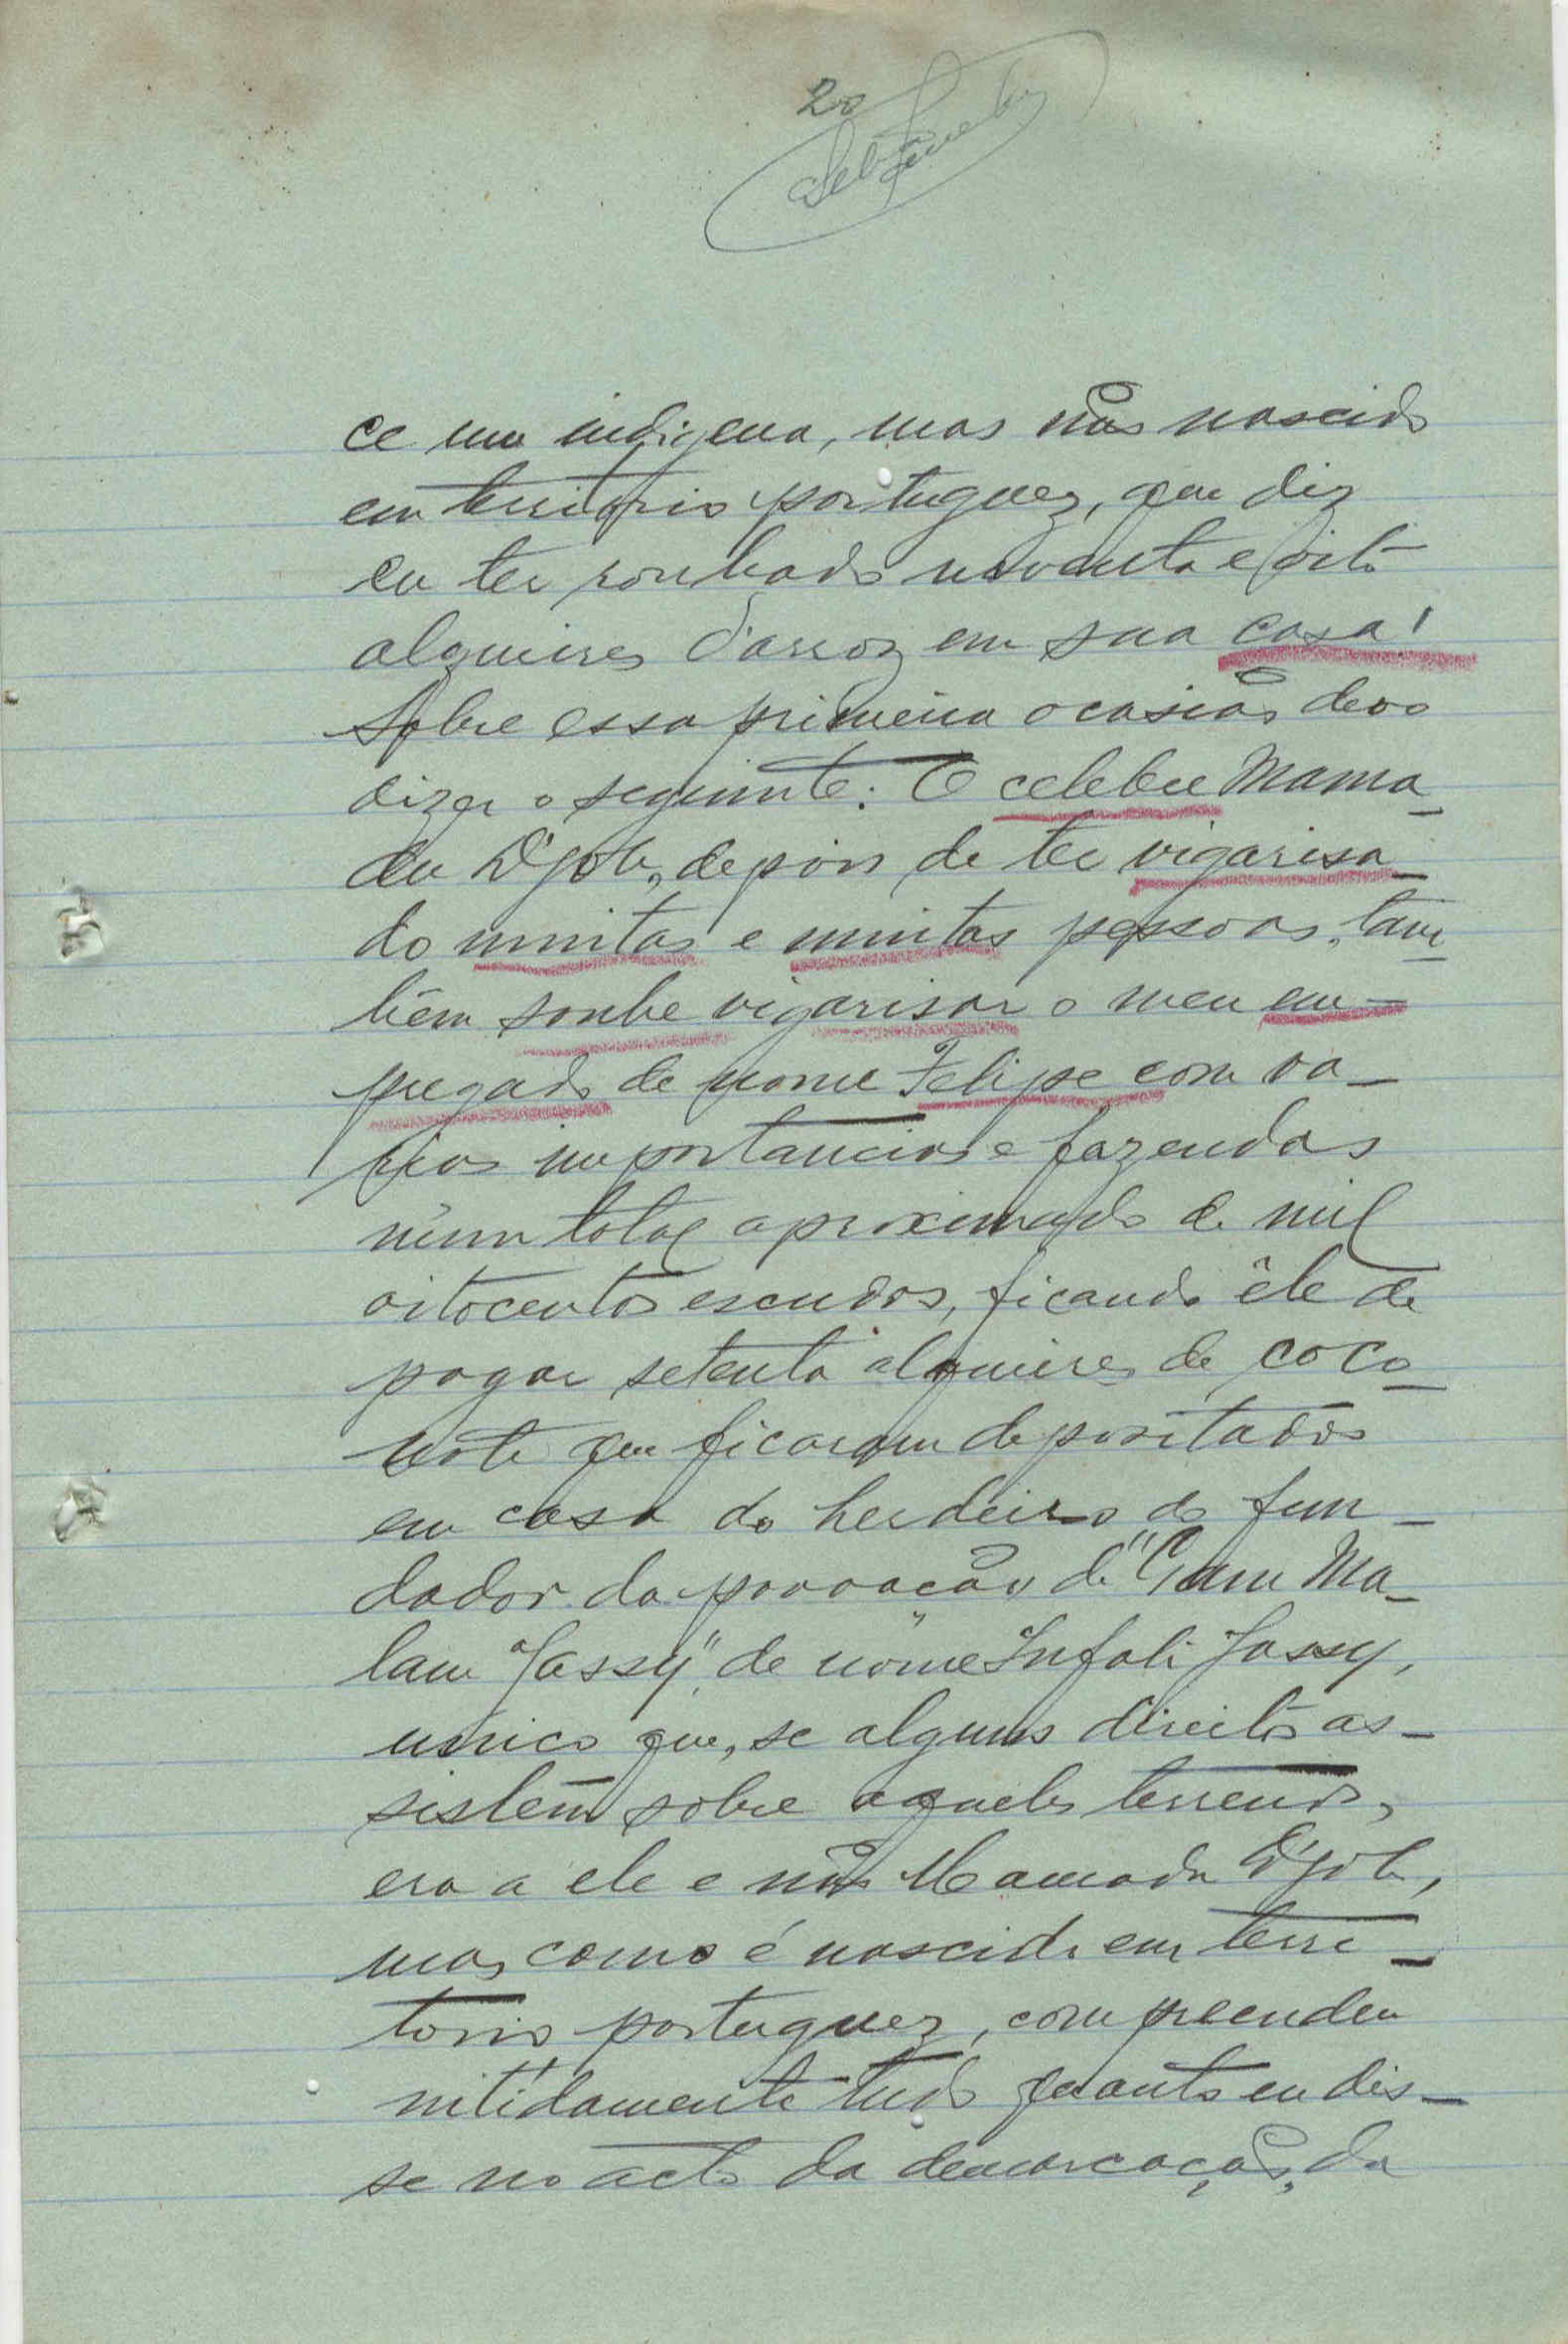 20
ce um indigena, mas não nascido
em territorio portuguez, que diz
eu ter roubado noventa e oito
alqueires d'arroz em sua casa!
Sobre essa primeira ocasião devo
dizer o seguinte: O celebre Mama_
du D'Job, depois de ter vigarisa_
do muitas e muitas pessoas, tam_
bêm soube vigarisar o meu em_
pregado de nome Felipe com va_
rias importancias e fazendas
num total aproximado de mil
oitocentos escudos, ficando êle de
pagar setenta alqueires de coco_
note que ficaram depositados
em casa do herdeiro do fun_
dador da povoação de "Gam Ma_
lam Jassy", de nome Infali Jassy,
unico que, se alguns direitos as_
sistem sobre aqueles terrenos,
era a ele e não Mamadu D'Job,
mas como é nascido em terri_
torio portuguez, compreendeu
nitidamente tudo quanto eu dis_
se no acto da demarcação, da